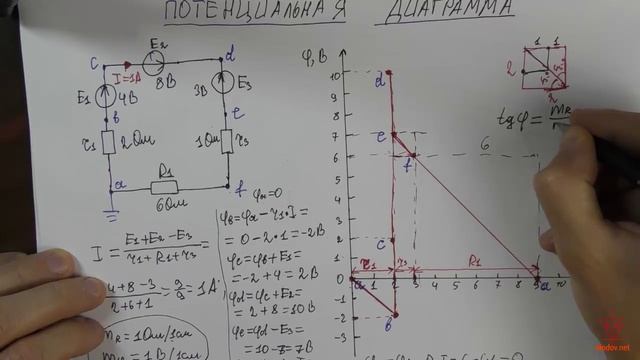 ПОТЕНЦИАЛЬНАЯ ДИАГРАММА
c E2 d
I=1A 8В
E1 4В 3В E3
b e
r1 2Ом 1Ом r3
a R1 f
6Ом
I = E1+E2-E3 / r1+R1+r3 =
4+8-3 / 2+6+1 = 9/9 = 1A
mR = 1Ом/1см
1В/1см
φa=0
φb=φa-r1·I=
=0-2·1=-2В
φc=φb+E1=
=-2+4=2В
φd=φc+E2=
=2+8=10В
φe=φd-E3=
=10-3=7В
φ,В
10 d
9
8
7 e
6 f 6
5
4
3
2 c
1
r1 r3 R1
0 a 1 2 3 4 5 6 7 8 9 a 10
-1
-2 b
-3
1 1
2
2
tgφ = mR
modov.net